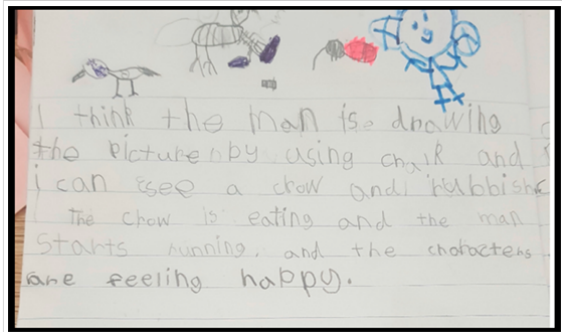 I think the man is drawing
the picture by using chalk and
i can see a crow and rubbish
The crow is eating and the man
Starts running. and the characters
are feeling happy.